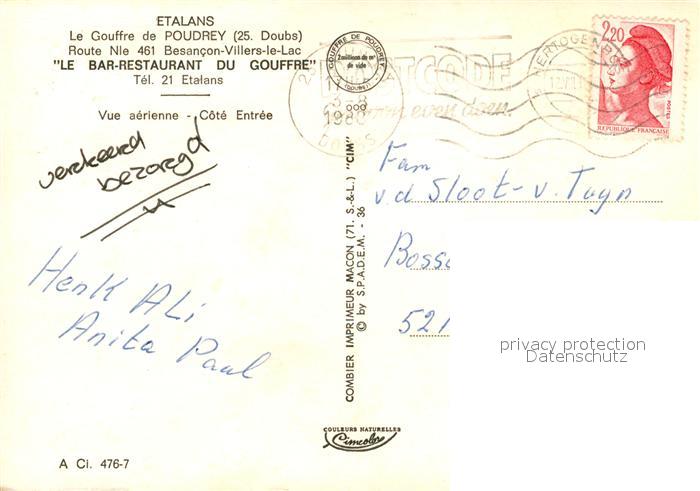 ETALANS
Le Gouffre de POUDREY (25. Doubs)
Route Nle 461 Besançon-Villers-le-Lac
"LE BAR-RESTAURANT DU GOUFFRE"
Tél. 21 Etalans
Vue aérienne - Côté Entrée
verkeerd
bezorgd
Henk Ali
Anita Paul
A Ci. 476-7
COMBIER IMPRIMEUR MACON (71. S.-&-L.) "CIM"
© by S.P.A.D.E.M. - 36
COULEURS NATURELLES
Cimcolor
GOUFFRE DE POUDREY
2 millions de m³
de vide
(DOUBS)
1988
DOUBS
POSTCODE
even doen.
2,20
REPUBLIQUE FRANÇAISE
Fam
v.d Sloot-v. Tuyn
Boss
521
privacy protection
Datenschutz